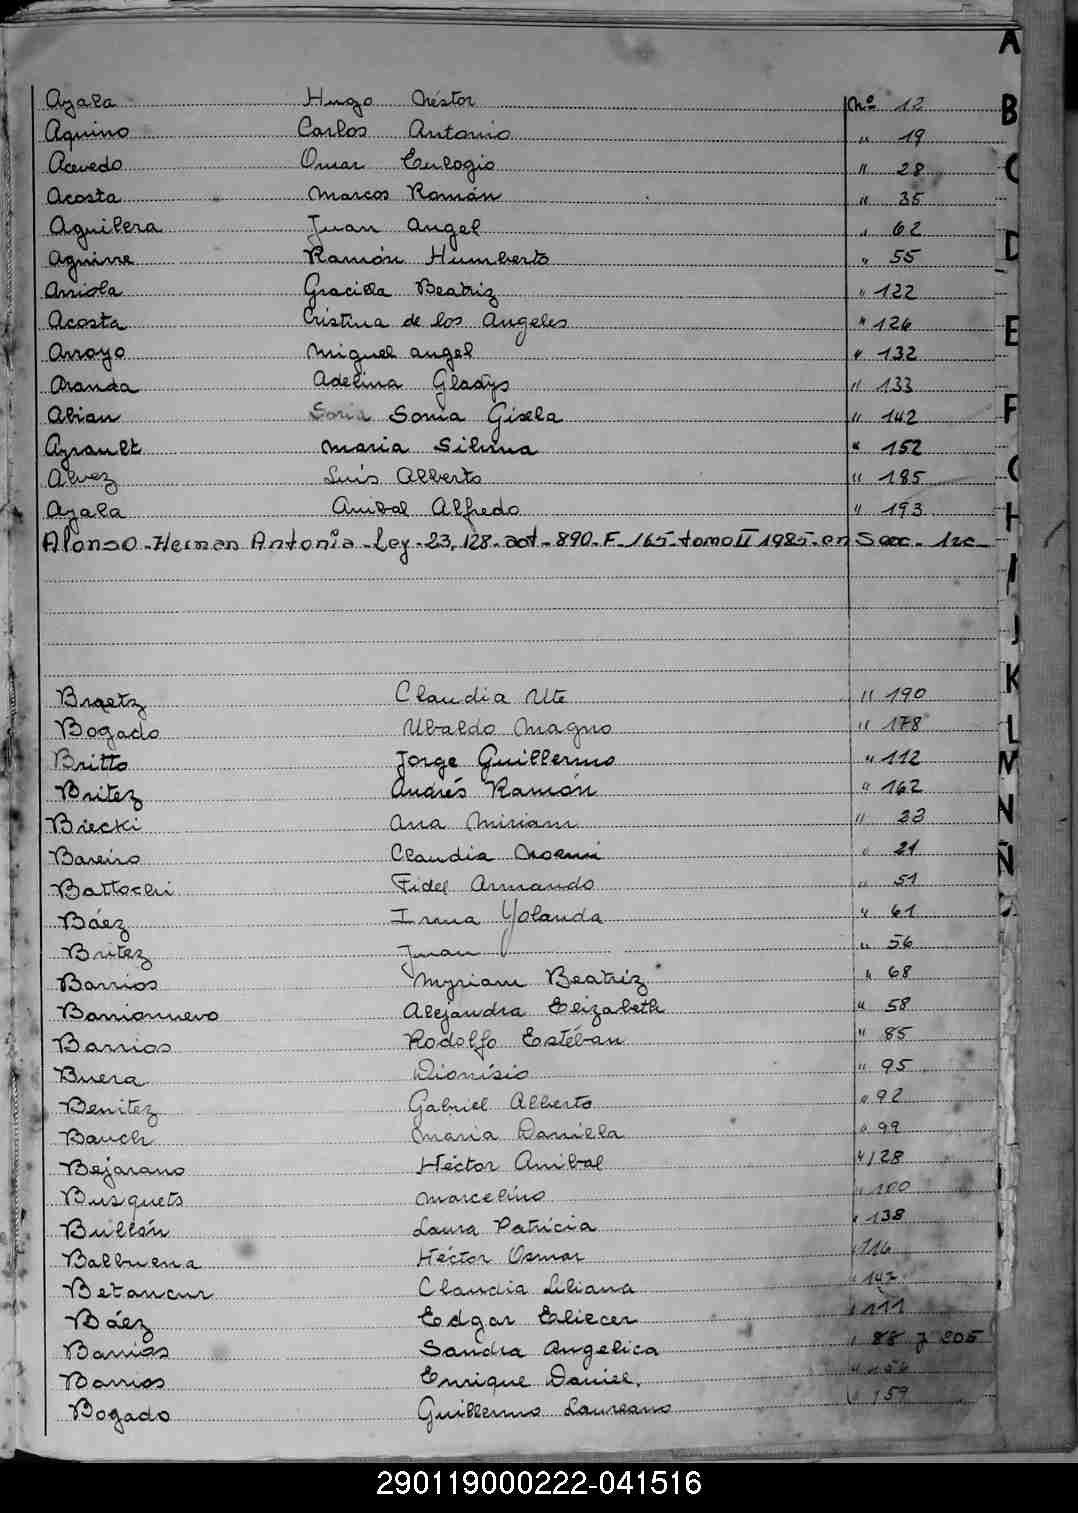 A
Ayala Hugo Néstor Nº 12
B
Aquino Carlos Antonio " 19
Acevedo Omar Eulogio " 28
C
Acosta Marcos Román " 35
Aguilera Juan Angel " 62
D
Aguirre Ramón Humberto " 55
Arriola Graciela Beatriz " 122
Acosta Cristina de los Angeles " 126
E
Arroyo Miguel angel " 132
Aranda Adelina Gladys " 133
Abian Sonia Gisela " 142
F
Ayrault Maria Silvina " 152
Alvez Luis Alberto " 185
G
Ayala Anibal Alfredo " 193
H
Alonso - Hernan Antonio - Ley - 23,128 - act - 890 - F - 165 - tomo II 1985 - en Secc - 1ra -
I
J
K
Braetz Claudia Ute " 190
Bogado Ubaldo Magno " 178
L
Britto Jorge Guillermo " 112
M
Britez Andrés Ramón " 162
N
Biecki Ana Miriam " 23
Bareiro Claudia Noemi " 21
Ñ
Battochi Fidel Armando " 51
Báez Irma Yolanda " 61
Britez Juan " 56
Barrios Myriam Beatriz " 68
Barrionuevo Alejandra Elizabeth " 58
Barrios Rodolfo Estéban " 85
Buera Dionisio " 95
Benitez Gabriel Alberto " 92
Bauch Maria Daniela " 99
Bejarano Héctor Anibal " 128
Busquets Marcelino " 100
Bullón Laura Patricia " 138
Balbuena Héctor Osmar " 116
Betancur Claudia Liliana " 147
Báez Edgar Eliecer " 111
Barrios Sandra Angelica " 88 y 205
Barrios Enrique Daniel.
Bogado Guillermo Laureano " 159
290119000222-041516